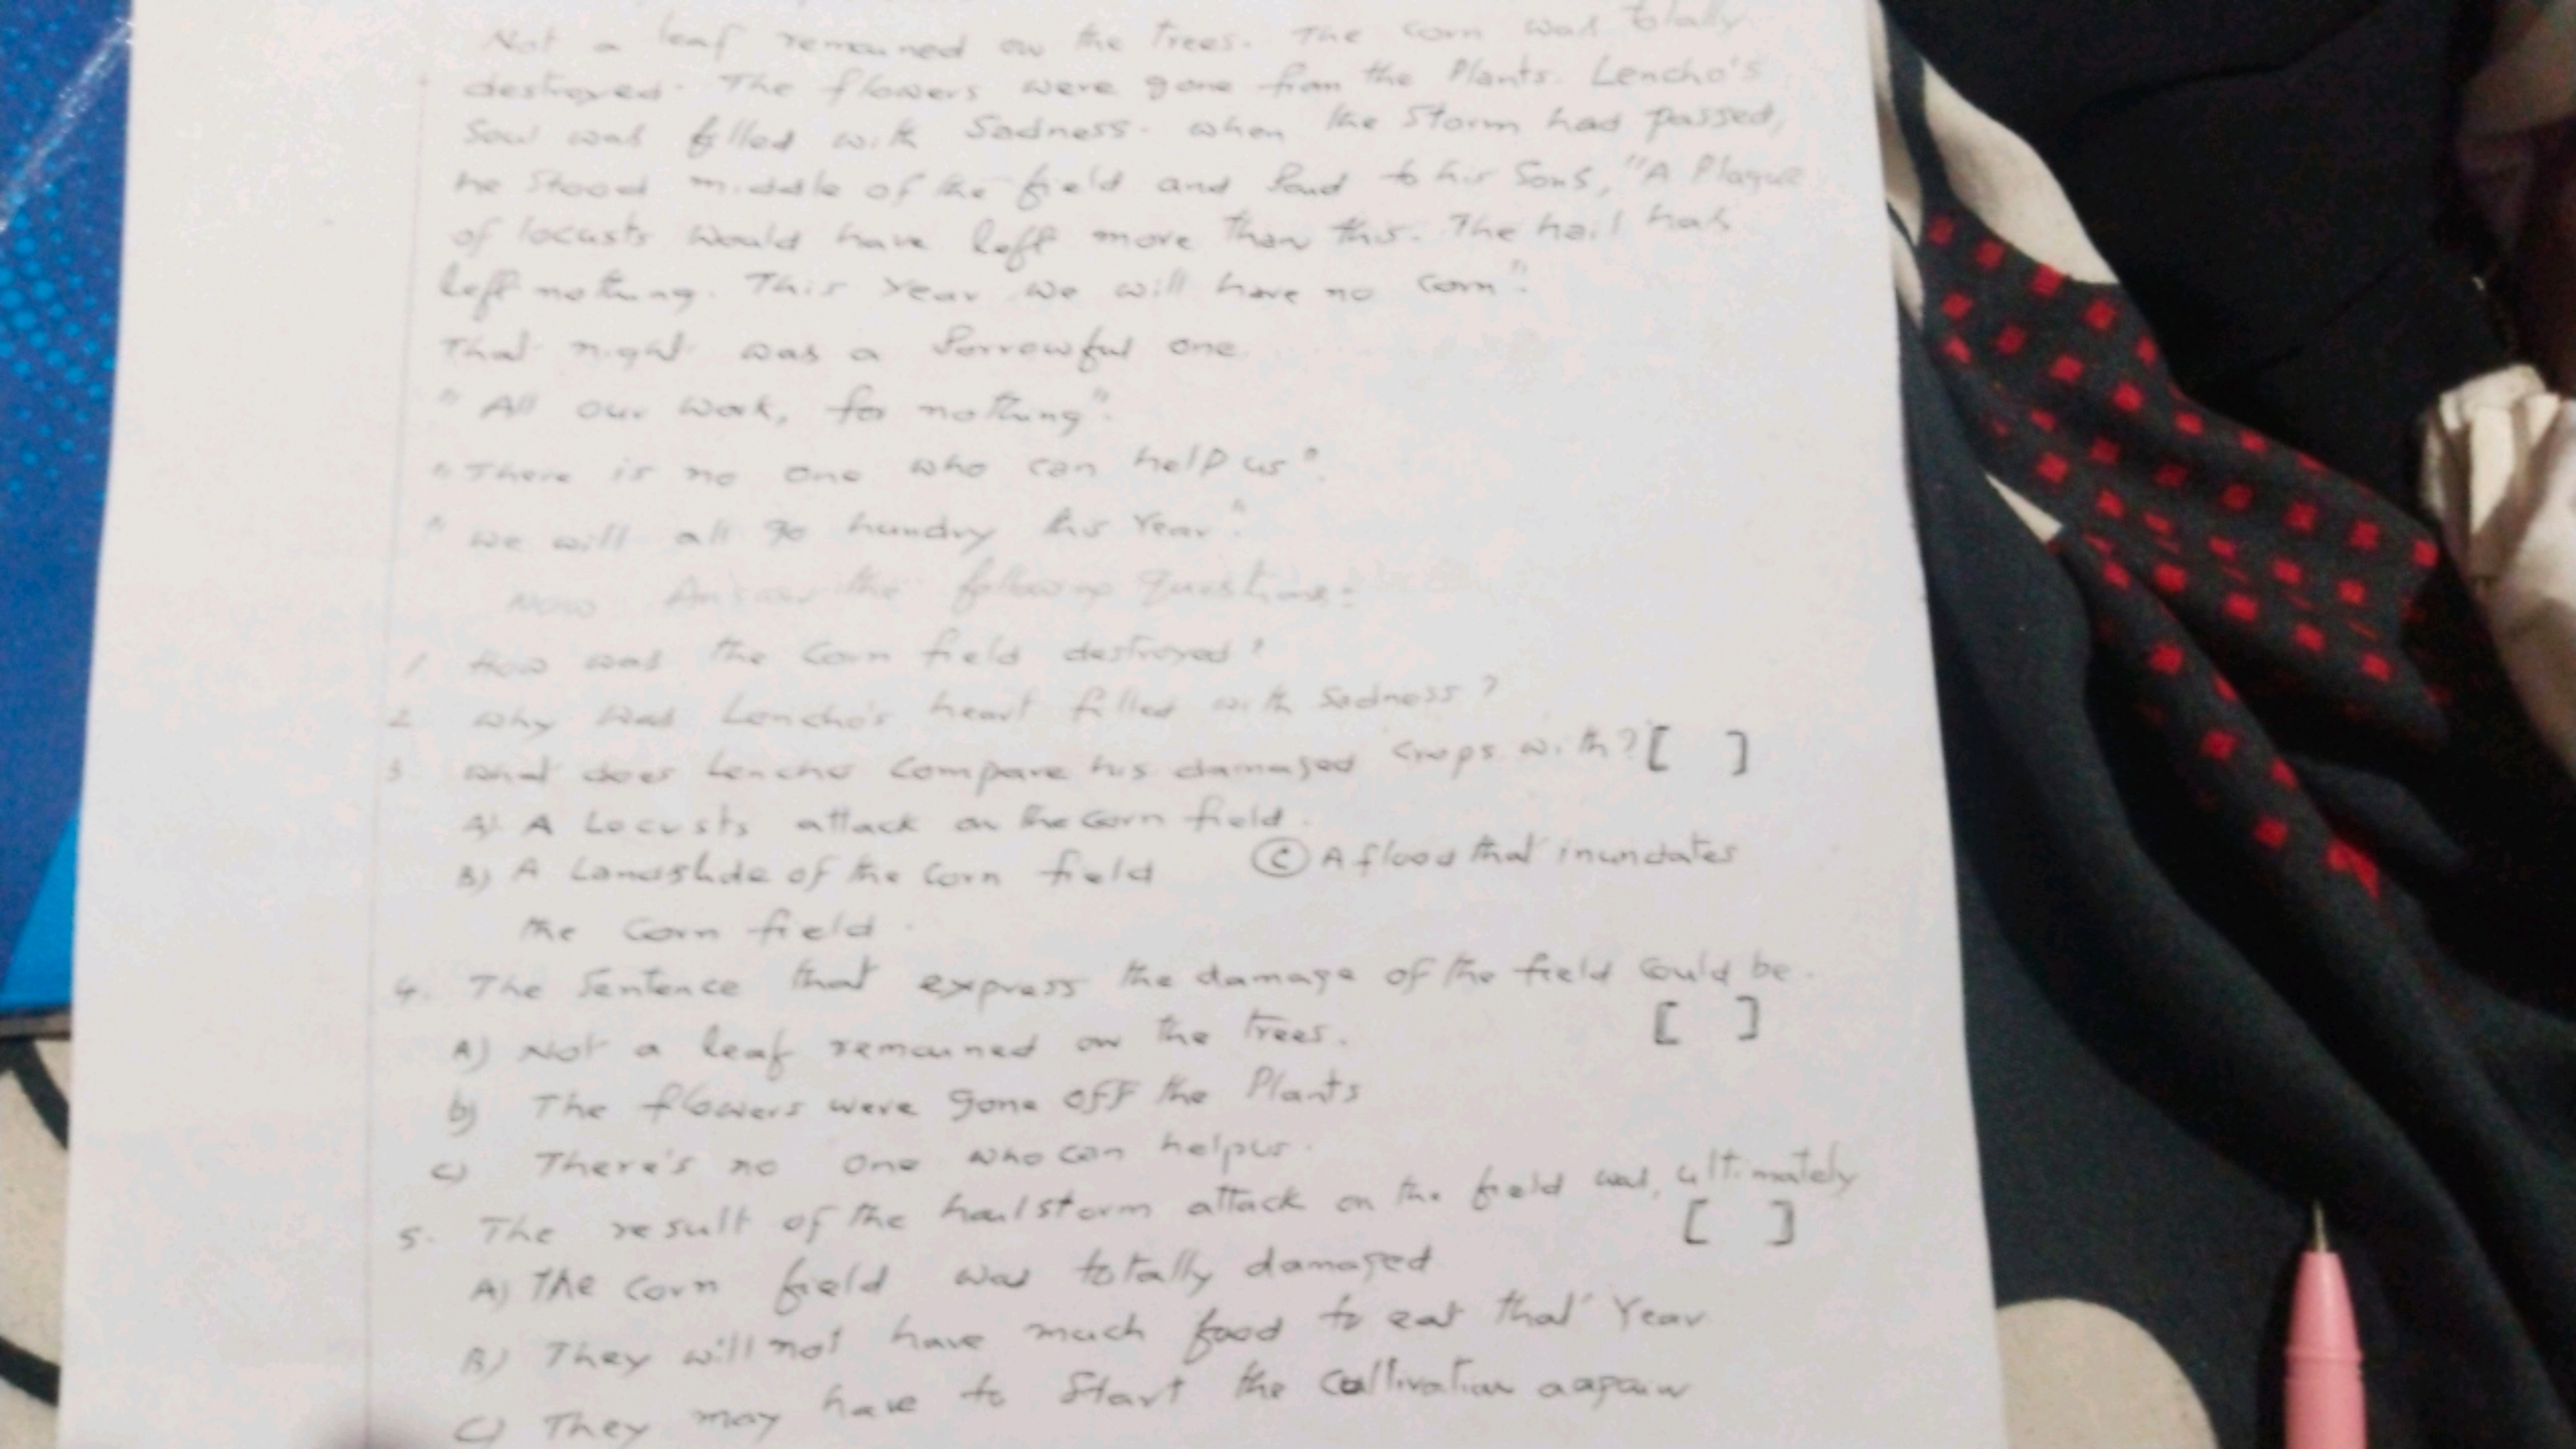 Not a leaf remained on the trees. The corn was totally
destroyed. The flowers were gone from the Plants. Lencho's
Soul was filled with Sadness. when the Storm had passed,
he Stood middle of the field and Said to his Sons, "A Plague
of locusts would have left more than this. The hail has
left nothing. This Year we will have no corn".
That night was a Sorrowful one
" All our work, for nothing".
"There is no one who can help us".
" we will all go hundry this Year".
Now Answer the following Questions:
1 How was the Corn field destroyed?
2 why was Lencho's heart filled with Sadness?
3 what does Lencho Compare his damaged crops with? [ ]
A) A Locusts attack on the corn field.
B) A Landslide of the Corn field (C) A flood that inundates
the Corn field.
4. The Sentence that express the damage of the field Could be.
[ ]
A) Not a leaf remained on the trees.
b) The flowers were gone OFF the Plants
c) There's no one who can help us.
5. The result of the hailstorm attack on the field was, ultimately
[ ]
A) The corn field was totally damaged
B) They will not have much food to eat that Year
C) They may have to Start the Cultivation aagain